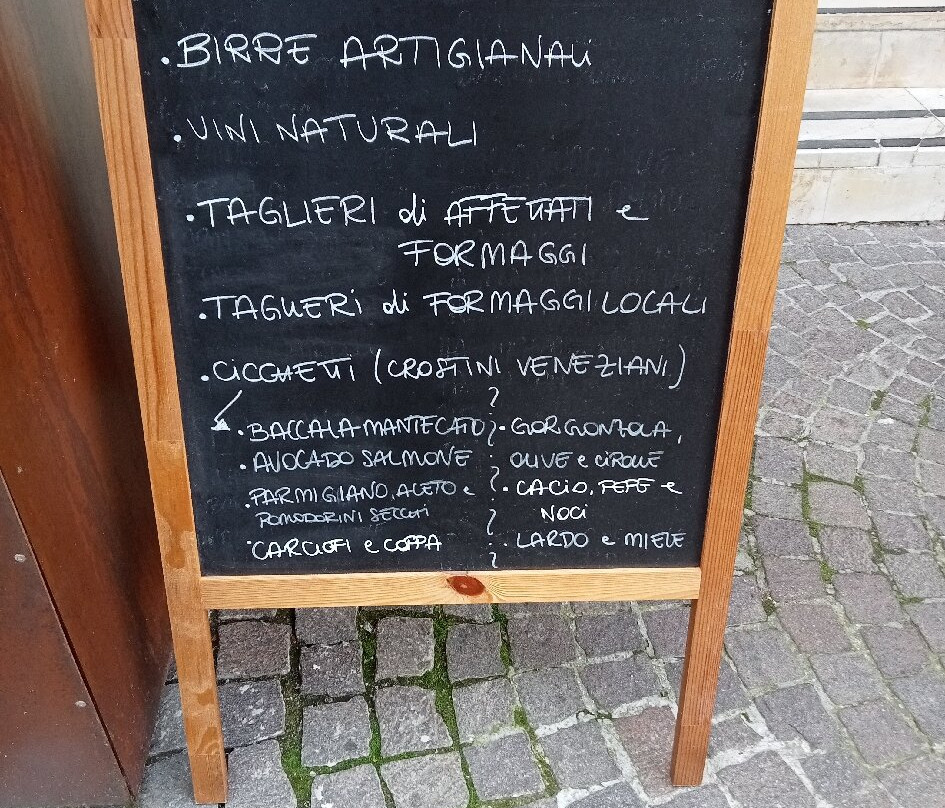 .BIRRE ARTIGIANALi
.VINI NATURALI
.TAGLIERI di AFFETTATI e
FORMAGGI
.TAGLIERi di FORMAGGI LOCALI
.CiCCHETTi (CROSTINI VENEZIANI)
.BACCALA MANTECATO
.AVOCADO SALMONE
.PARMIGIANO, ACETO e
POMODORINI SECCHi
.CARCIOFI e COPPA
.GORGONZOLA,
OLIVE e CIPOLLE
.CACiO, PEPE e
NOCi
.LARDO e MIELE